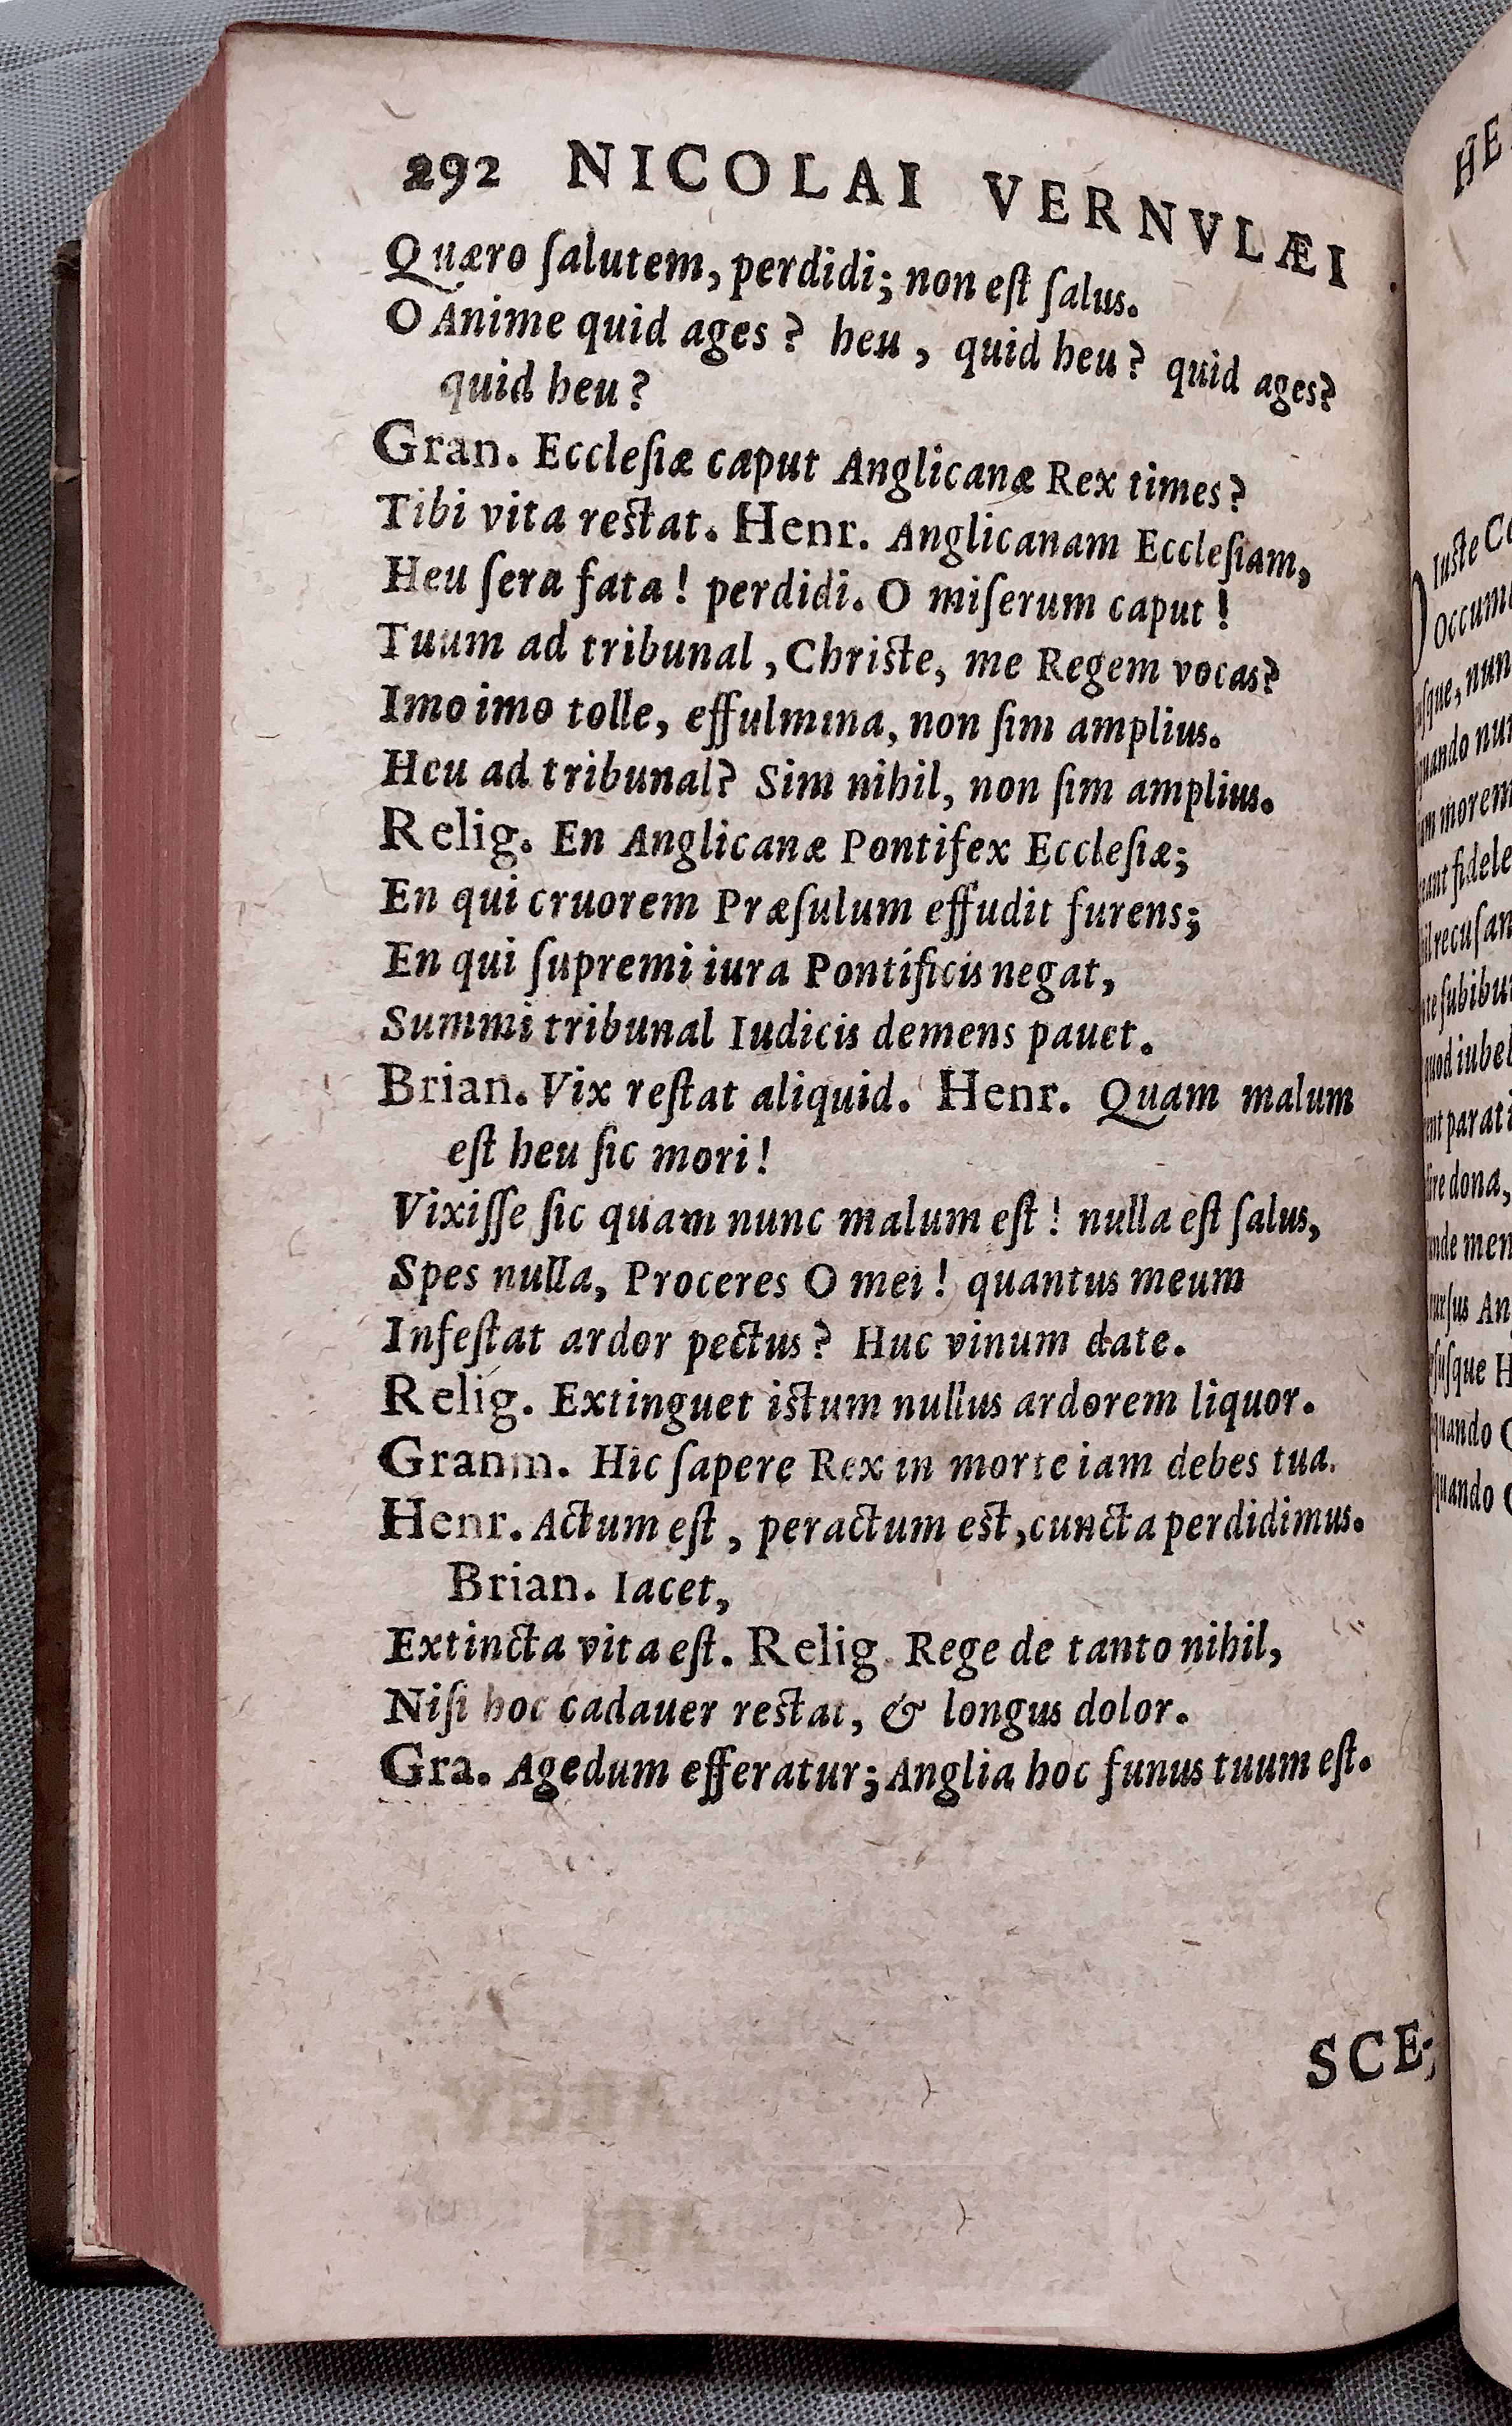 292 NICOLAI VERNVLÆI
Quæro ſalutem, perdidi; non eſt ſalus.
O Anime quid ages? heu, quid heu? quid ages?
quid heu?
Gran. Eccleſiæ caput Anglicanæ Rex times?
Tibi vita reſtat. Henr. Anglicanam Eccleſiam,
Heu ſera fata! perdidi. O miſerum caput!
Tuum ad tribunal, Chriſte, me Regem vocas?
Imo imo tolle, effulmina, non ſim amplius.
Heu ad tribunal? Sim nihil, non ſim amplius.
Relig. En Anglicanæ Pontifex Eccleſiæ;
En qui cruorem Præſulum effudit furens;
En qui ſupremi iura Pontificis negat,
Summi tribunal Iudicis demens pauet.
Brian. Vix reſtat aliquid. Henr. Quam malum
eſt heu ſic mori!
Vixiſſe ſic quam nunc malum eſt! nulla eſt ſalus,
Spes nulla, Proceres O mei! quantus meum
Infeſtat ardor pectus? Huc vinum date.
Relig. Extinguet iſtum nullus ardorem liquor.
Granm. Hic ſapere Rex in morte iam debes tua.
Henr. Actum eſt, peractum eſt, cuncta perdidimus.
Brian. Iacet,
Extincta vita eſt. Relig. Rege de tanto nihil,
Niſi hoc cadauer reſtat, & longus dolor.
Gra. Agedum efferatur; Anglia hoc funus tuum eſt.
SCE-
HE
Iuſte
ſque, nun
morem
fidele
recuſan
ſubibu
quod iubet
parati
dona,
men
An
ſuſque H
quando
quando